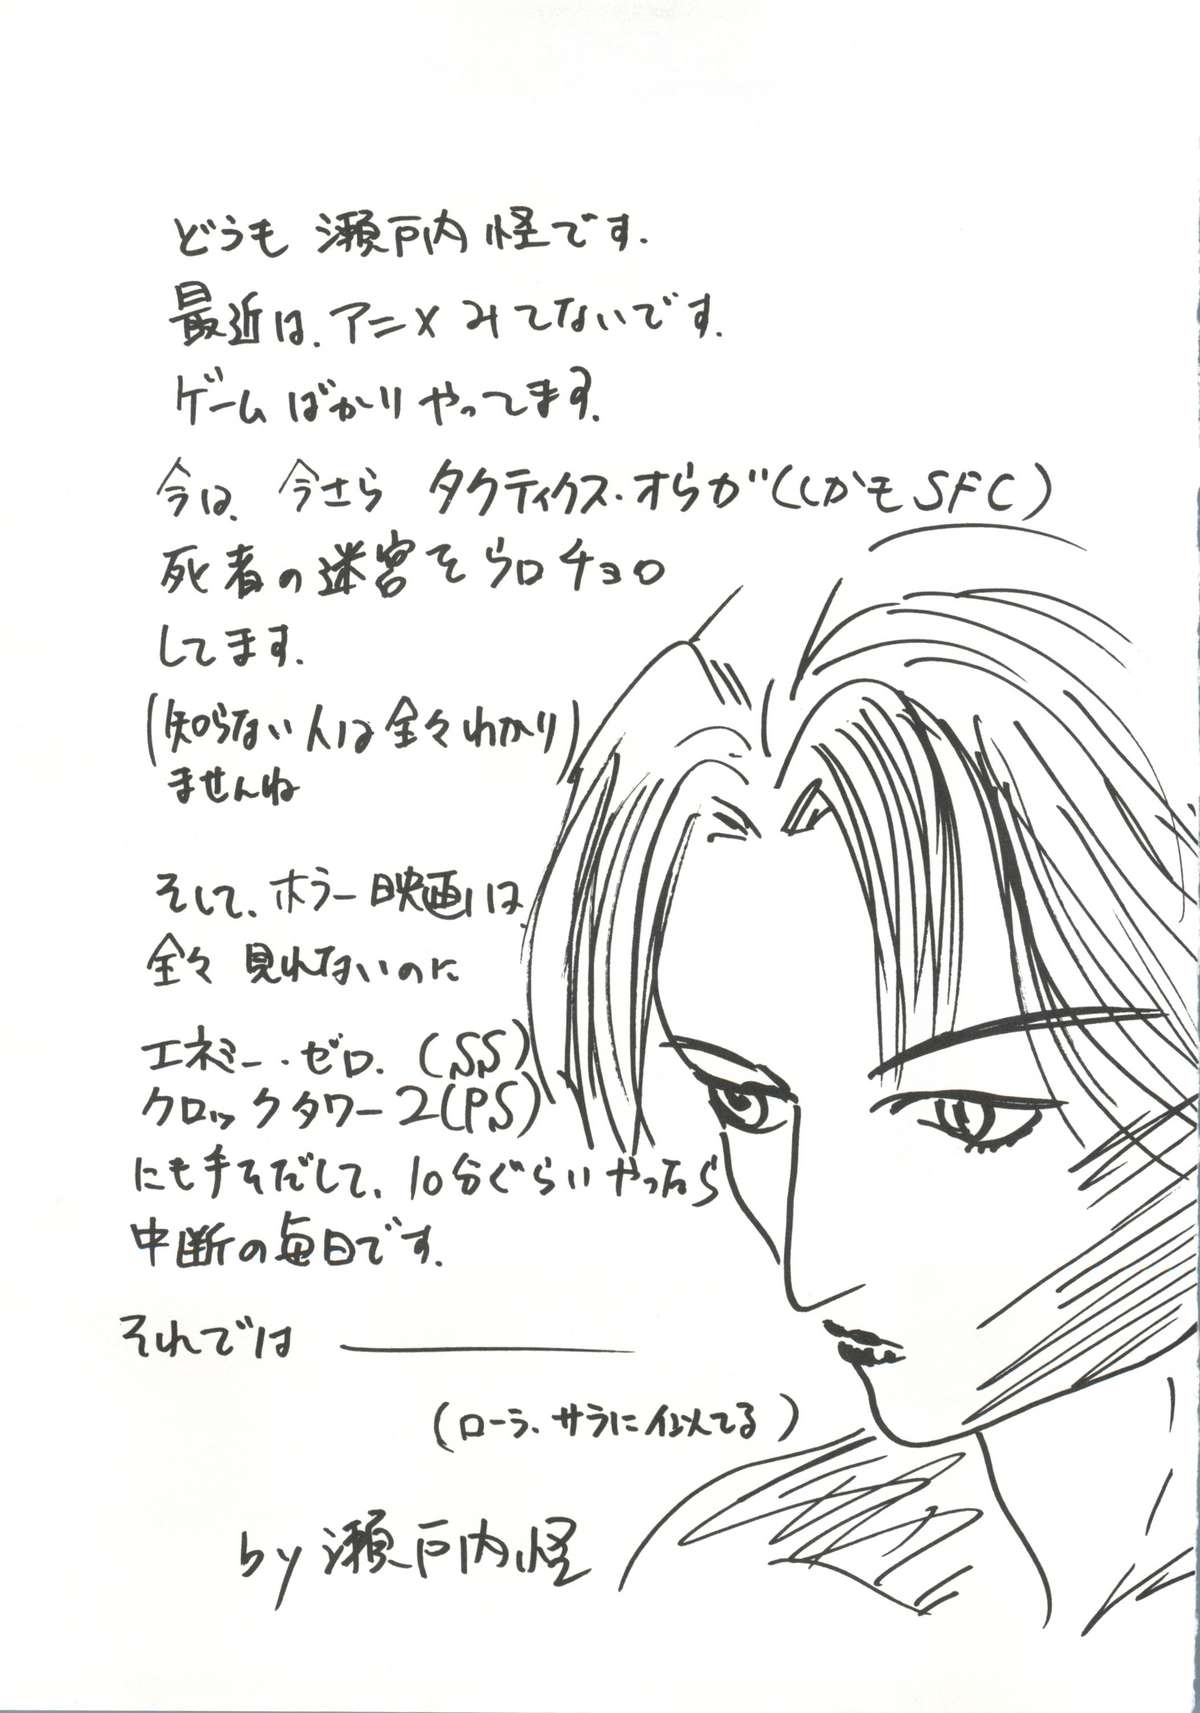 どうも 瀬戸内 怪です.
最近は.アニメみてないです.
ゲームばかりやってます.
今は、今さら タクティクス・オウガ(しかもSFC)
死者の迷宮をウロチョロ
してます.
(知らない人は全々わかり)
ませんね
そして、ホラー映画は、
全々見れないのに
エネミー・ゼロ.(SS)
クロックタワー2(PS)
にも手をだして、10分ぐらいやったら
中断の毎日です.
それでは ―――
(ローラ、サラに似てる)
by 瀬戸内怪